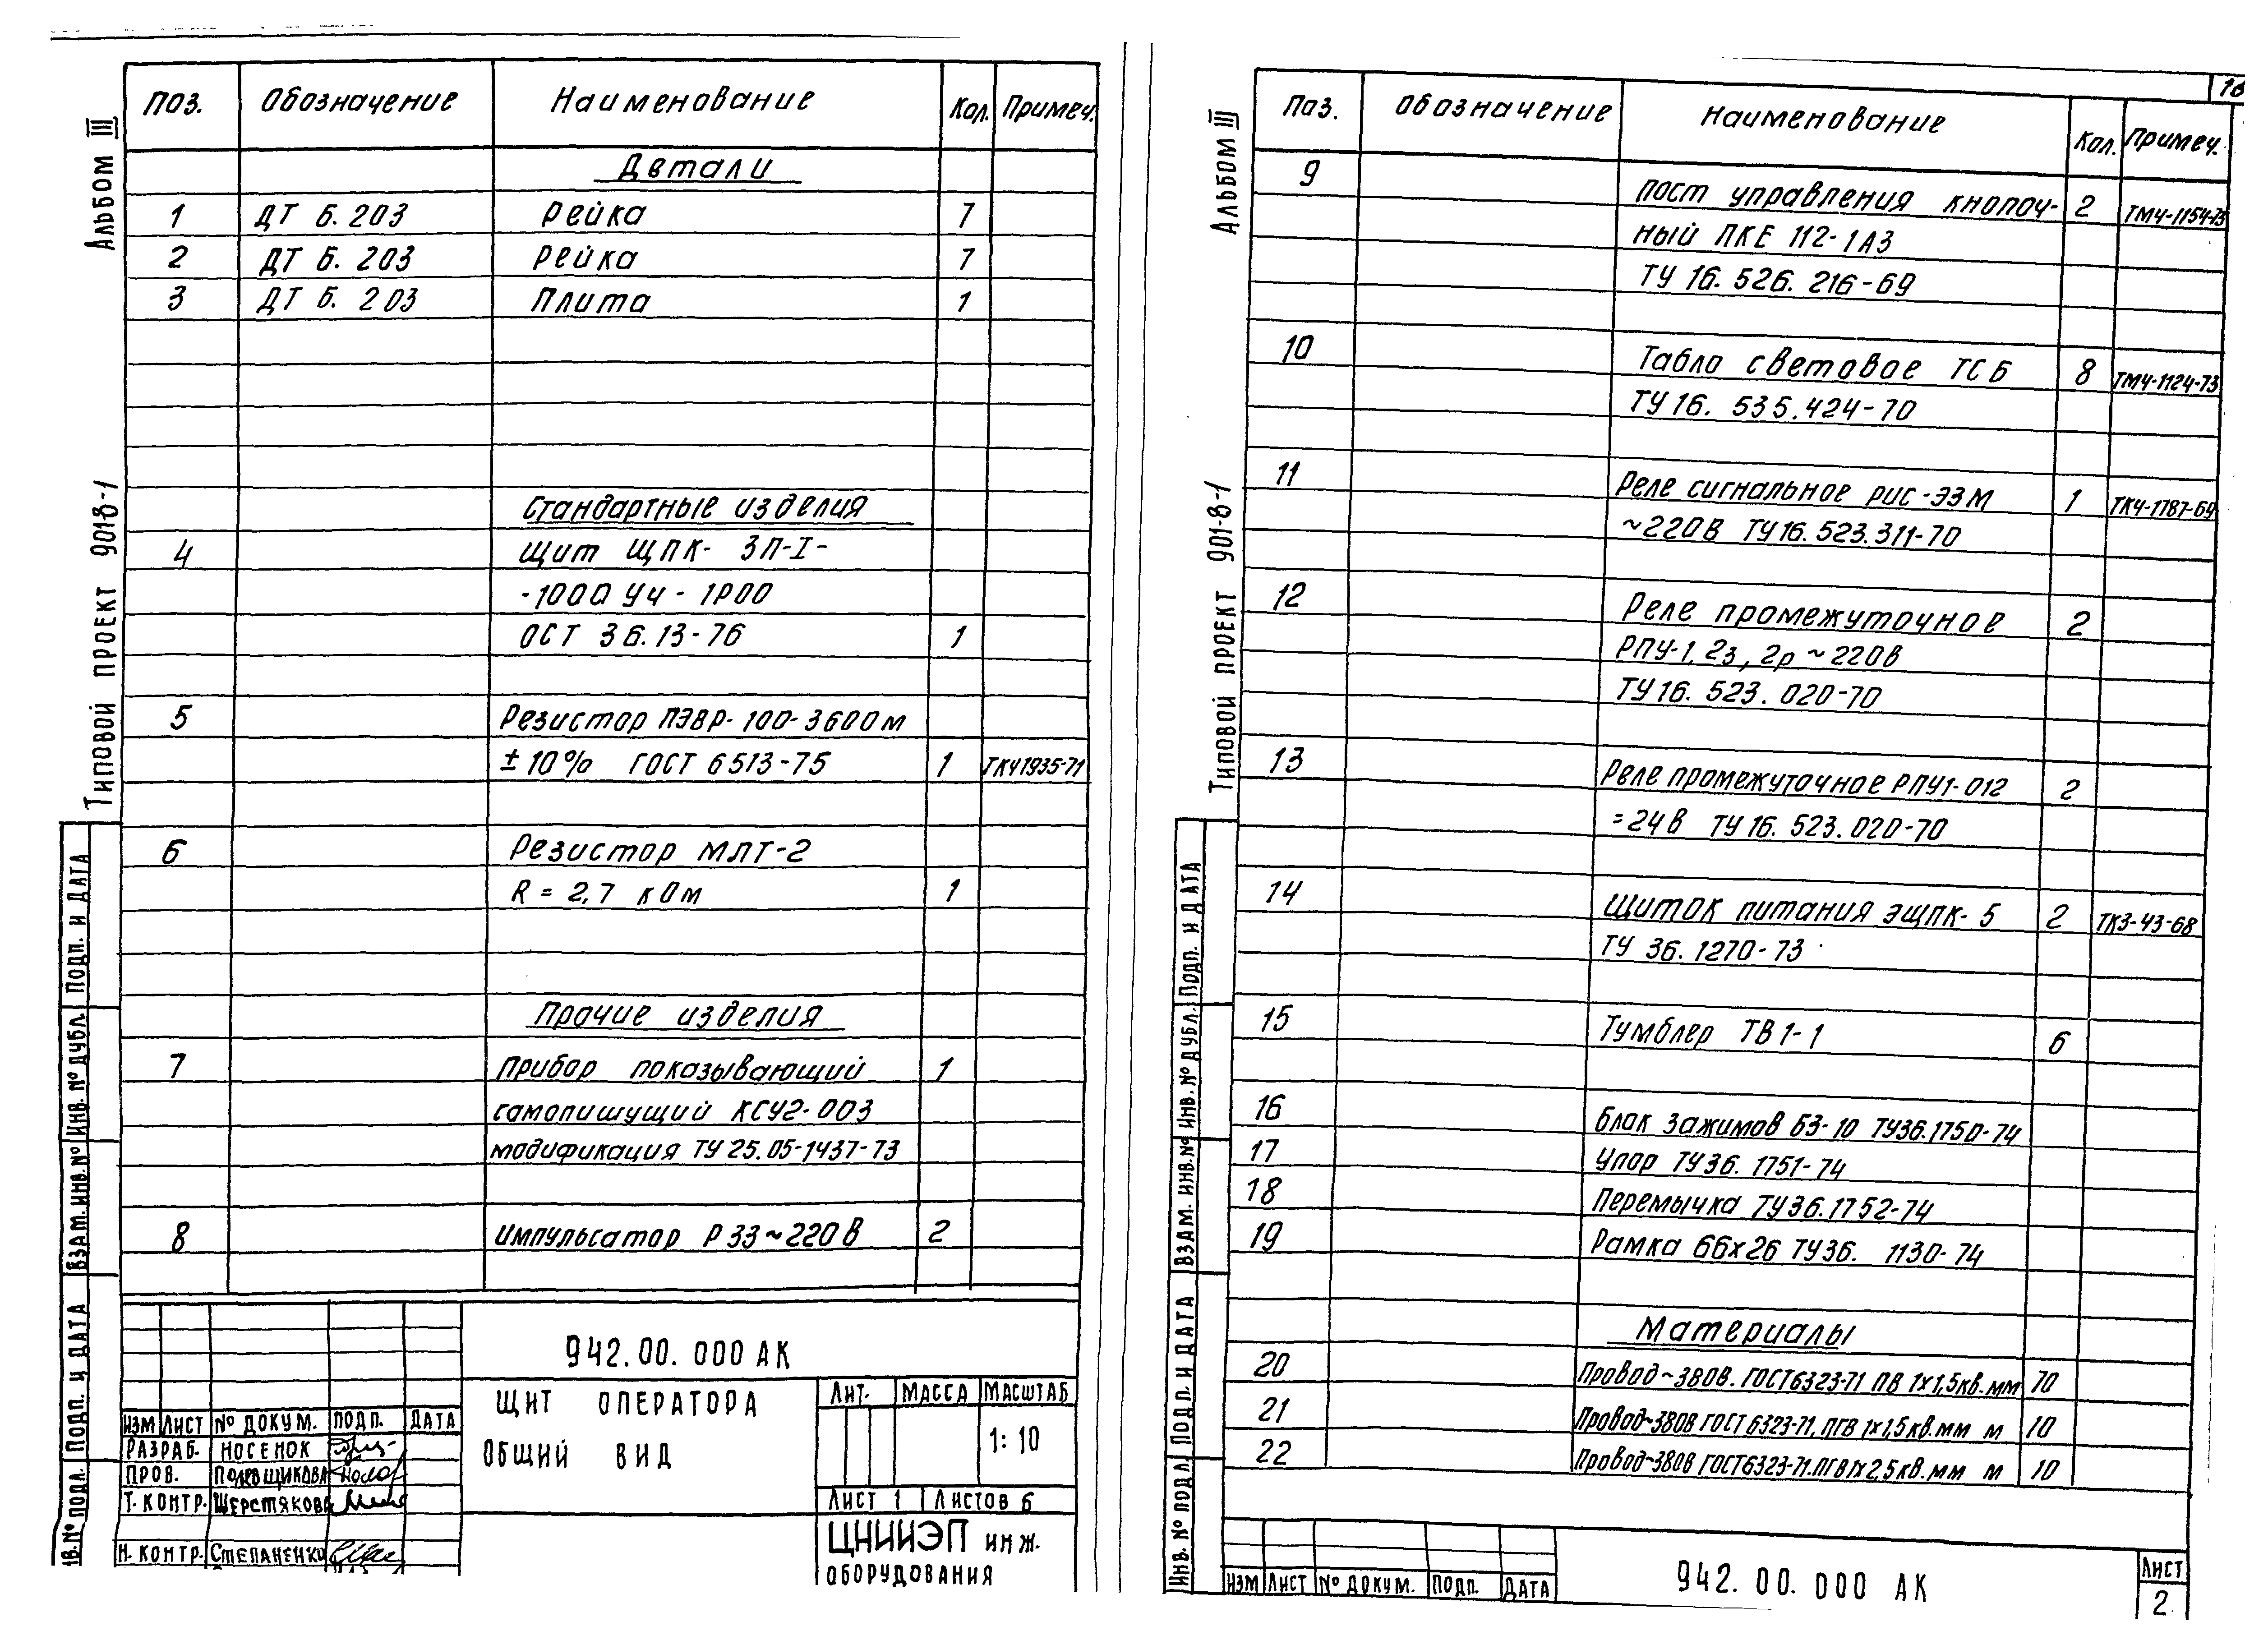 Альбом III
Типовой проект 901-8-1
Поз. Обозначение Наименование Кол. Примеч.
Детали
1 ДТ Б. 203 Рейка 7
2 ДТ Б. 203 Рейка 7
3 ДТ Б. 203 Плита 1
Стандартные изделия
4 Щит ЩПК- ЗП-I-
-1000 УЧ - 1Р00
ОСТ 36.13-76 1
5 Резистор ПЭВР-100-360Ом
±10% ГОСТ 6513-75 1 ТКЧ1935-71
6 Резистор МЛТ-2
R = 2,7 кОм 1
Прочие изделия
7 Прибор показывающий 1
самопишущий КСУ2-003
модификация ТУ 25.05-1437-73
8 Импульсатор Р 33 ~ 220 В 2
Подп. и дата
Инв. № дубл.
Взам. инв. №
Подп. и дата
№ подл.
942.00.000 АК
Щит оператора
Общий вид
Лит. Масса Масштаб
1:10
Лист 1 Листов 6
ЦНИИЭП инж.
оборудования
Изм Лист № докум. Подп. Дата
Разраб. Носенок
Пров. Полевщикова
Т. контр. Шерстякова
Н. контр. Степаненко
Альбом III
Типовой проект 901-8-1
Поз. Обозначение Наименование Кол. Примеч.
9 Пост управления кнопоч- 2 ТМЧ-1154-73
ный ПКЕ 112-1А3
ТУ 16.526.216-69
10 Табло световое ТСБ 8 ТМЧ-1124-73
ТУ 16.535.424-70
11 Реле сигнальное РИС-ЭЗМ 1 ТКЧ-1787-69
~220В ТУ16.523.311-70
12 Реле промежуточное 2
РПУ-1, 2з, 2р ~ 220В
ТУ 16.523.020-70
13 Реле промежуточное РПУ1-012 2
=24В ТУ 16.523.020-70
14 Щиток питания ЭЩПК-5 2 ТК3-43-68
ТУ 36.1270-73
15 Тумблер ТВ1-1 6
16 Блок зажимов БЗ-10 ТУ36.1750-74
17 Упор ТУ36.1751-74
18 Перемычка ТУ36.1752-74
19 Рамка 66х26 ТУ36. 1130-74
Материалы
20 Провод~380В. ГОСТ6323-71 ПВ 1х1,5кв.мм 70
21 Провод~380В ГОСТ 6323-71, ПГВ 1х1,5кв.мм м 10
22 Провод~380В ГОСТ6323-71. ПГВ1х2,5кв.мм м 10
Подп. и дата
Инв. № дубл.
Взам. инв. №
Подп. и дата
Инв. № подл.
Изм Лист № докум. Подп. Дата
942.00.000 АК
Лист
2